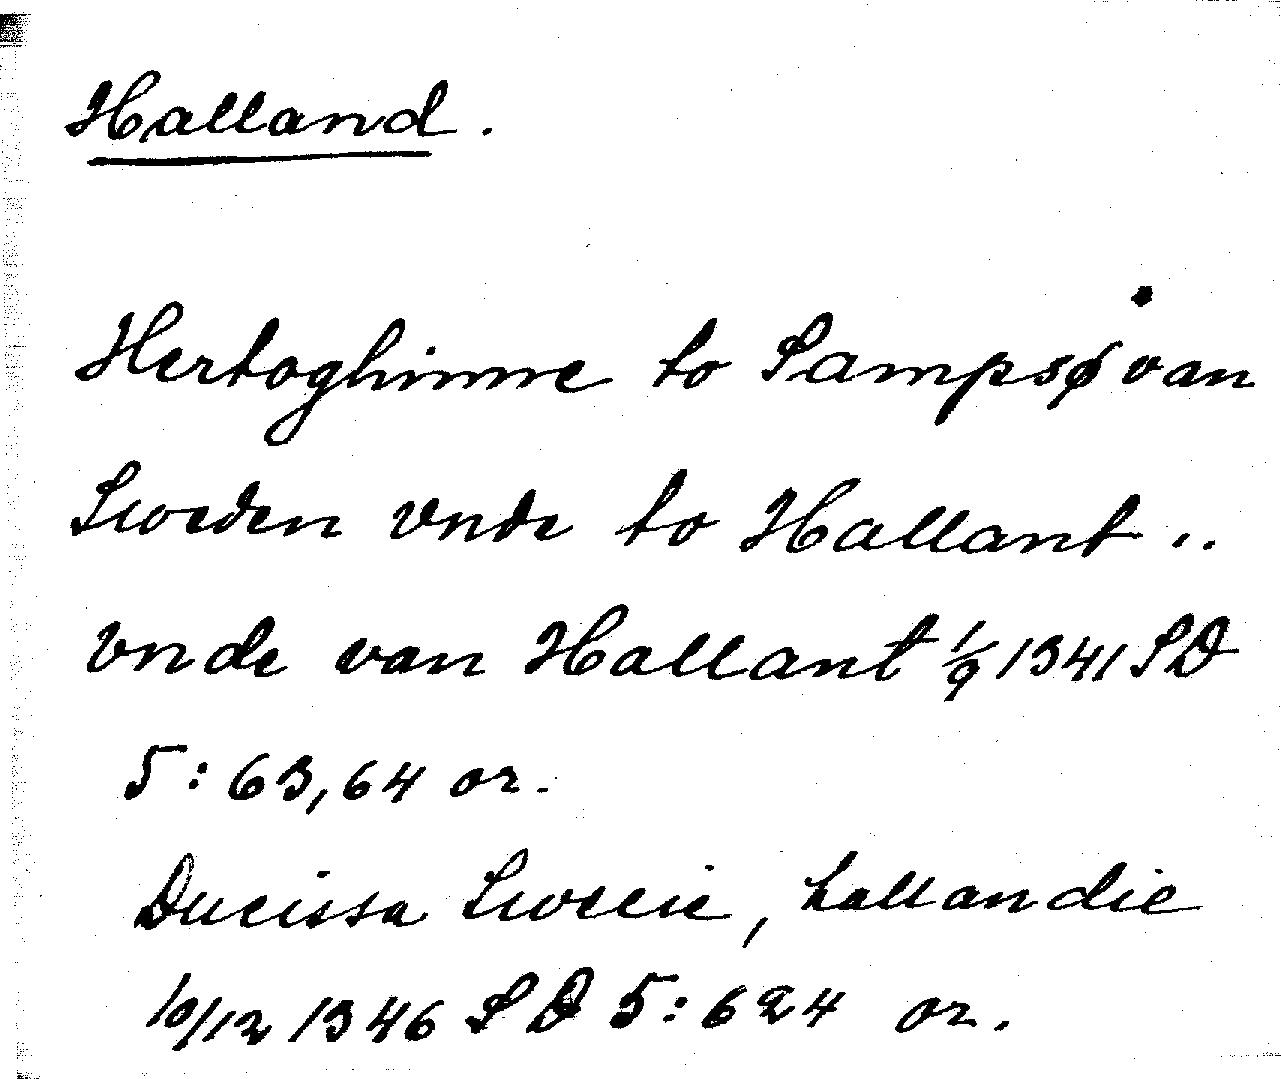 Halland.
Hertoghinne to Sampsø van
Sweden vnde to Hallant ..
vnde van Hallant 1/9 1341 SD
5: 63, 64 or.
Ducissa Swecie, hallandie
10/12 1346 SD 5: 624 or.